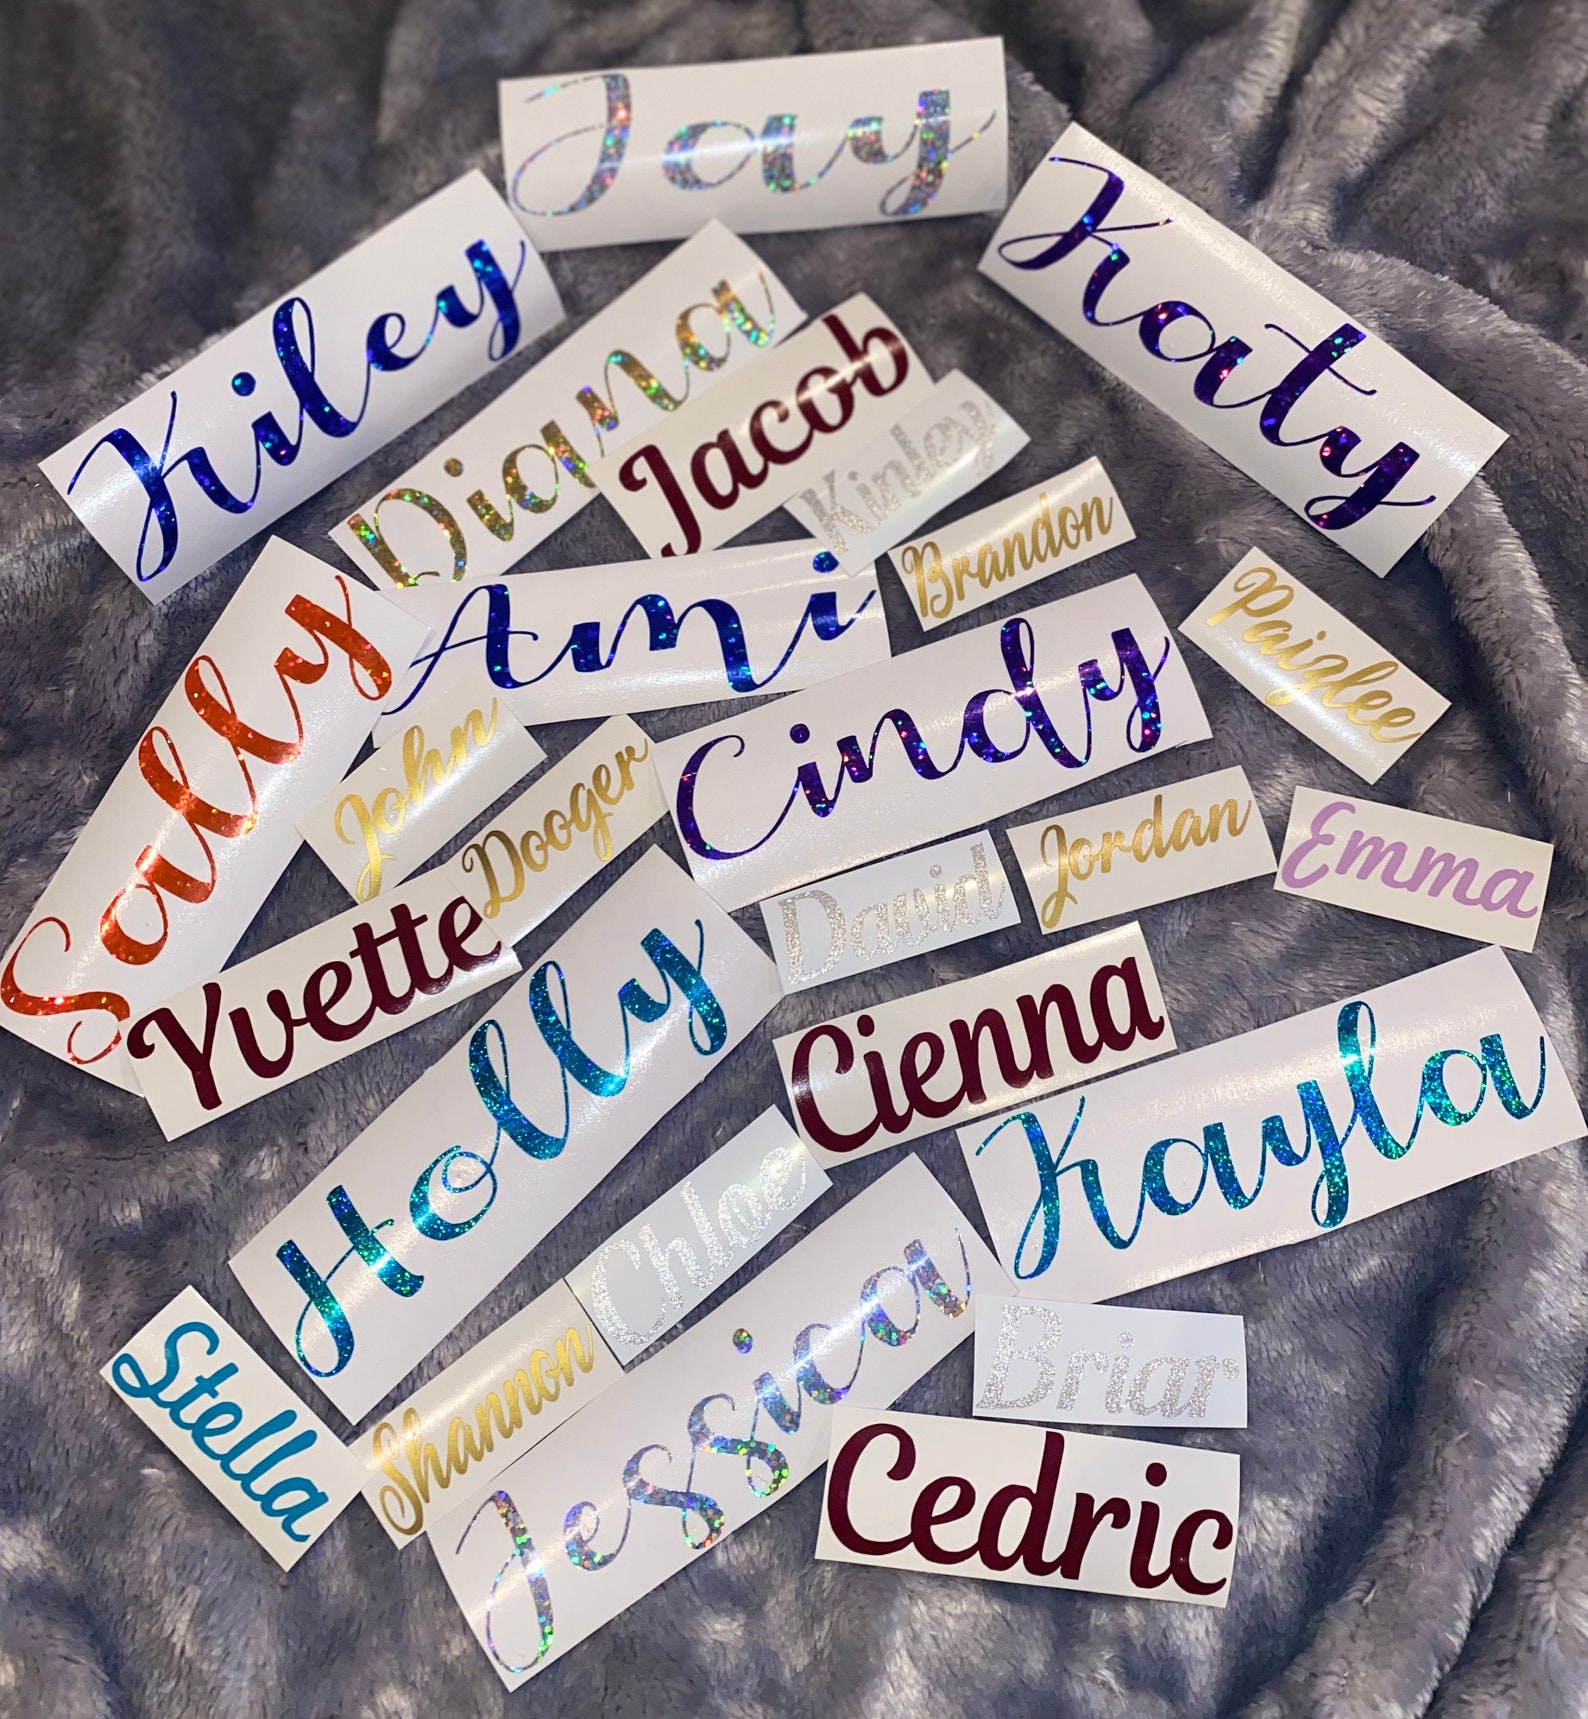 Jay
Kiley
Katy
Diana
Jacob
Kinley
Brandon
Ami
Paizlee
Sally
Cindy
John
Dooger
Jordan
Emma
David
Yvette
Holly
Cienna
Kayla
Chloe
Stella
Shannon
Jessica
Briar
Cedric